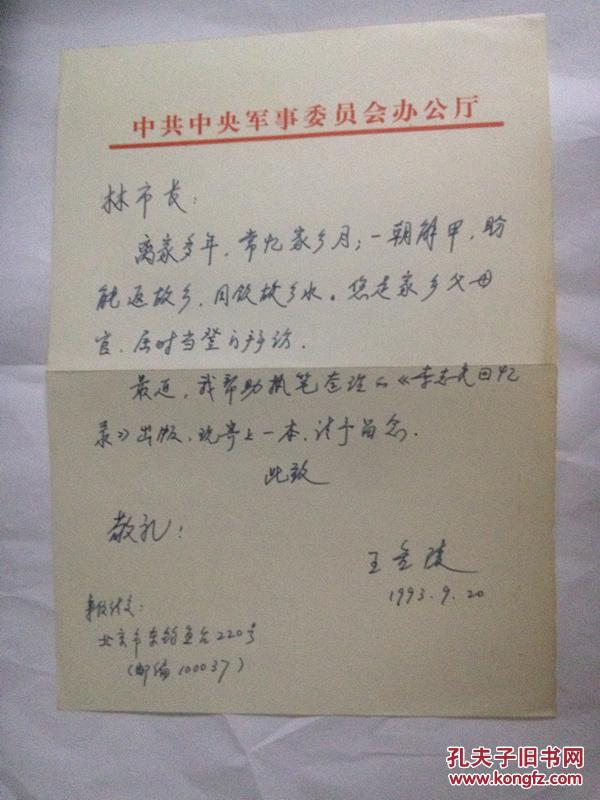 中共中央军事委员会办公厅
林市长：
离家多年，常忆家乡月；一朝解甲，盼
能返故乡，同饮故乡水。您是家乡父母
官，届时当登门拜访。
最近，我帮助执笔整理的《李志民回忆
录》出版，现寄上一本，请予留念。
此致
敬礼！
王
1993.9.20
北京市东钓鱼台220号
（邮编100037）
孔夫子旧书网
www.kongfz.com